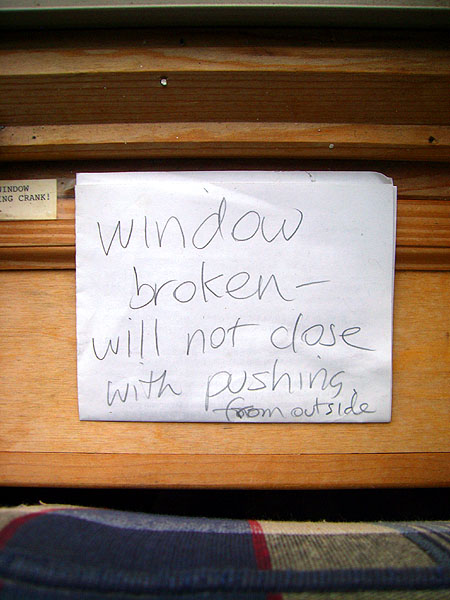 WINDOW
ING CRANK!
window
broken-
will not close
with pushing
from outside